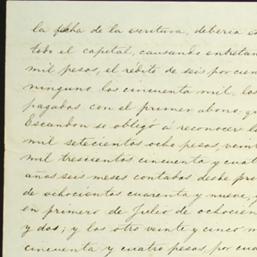 la fecha de la escritura, debería
todo el capital, causando entretan
mil pesos, el rédito de seis por cien
ninguno los cincuenta mil, los
pagados con el primer abono, qu
Escandon se obligó á reconocer l
mil setecientos ocho pesos, vein
mil trescientos cincuenta y cuat
años seis meses contados desde pri
de ochocientos cuarenta y nueve,
en primero de Julio de ochocien
y dos; y los otro veinte y cinco m
cincuenta y cuatro pesos, por cua